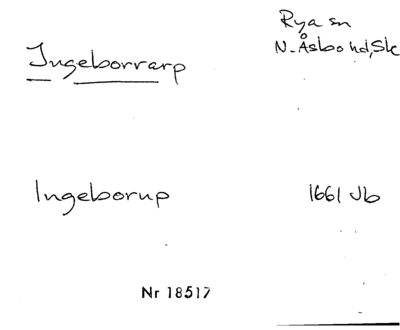 Rya sn
Ingeborrarp
N. Åsbo hd, Sk
Ingeborup
1661 Jb
Nr 18517